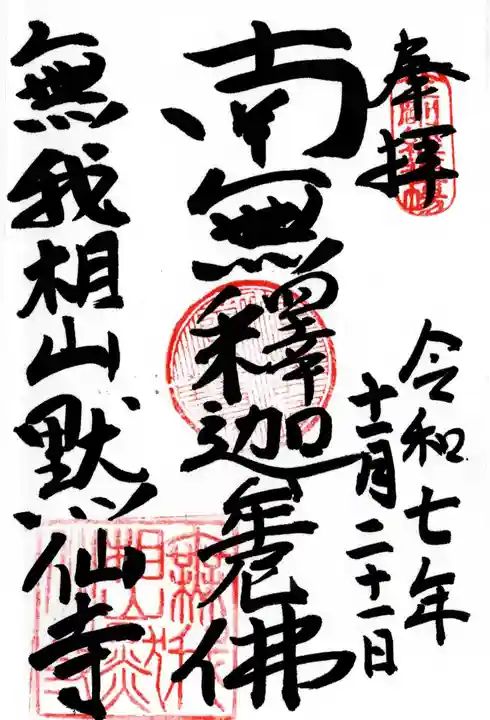 奉拝
令和七年
十一月二十一日
南無釋迦牟尼佛
無我相山默仙寺